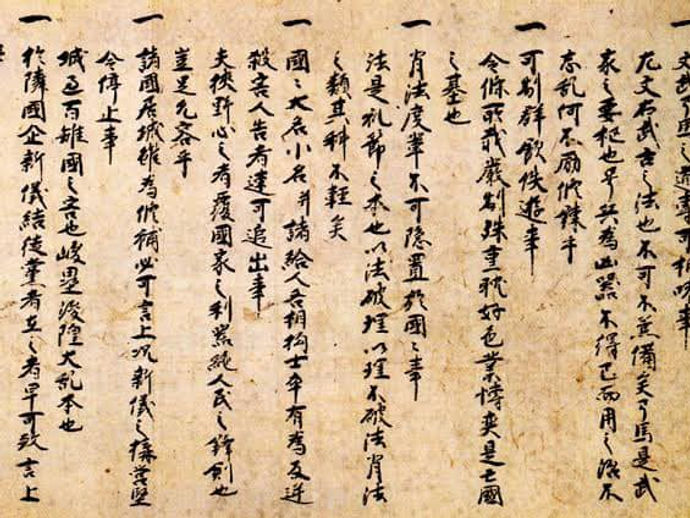 一 文武弓馬之道専可相嗜事
左文右武古之法也不可不兼備矣弓馬是武
家之要枢也号兵為凶器不得已而用之治不
忘乱何不励修錬乎
一 可制群飲佚遊事
令條所載厳制殊重耽好色業博奕是亡國
之基也
一 背法度輩不可隠置於國々事
法是礼節之本也以法破理以理不破法背法
之類其科不軽矣
一 國々大名小名并諸給人各相抱士卒有為反逆
殺害人告者速可追出事
夫挟野心之者覆國家之利器絶人民之鋒剣也
豈足允容乎
一 諸國居城雖為修補必可言上况新儀之搆営堅
令停止事
城過百雉國之害也峻塁浚隍大乱本也
一 於隣國企新儀結徒黨者在之者早可致言上